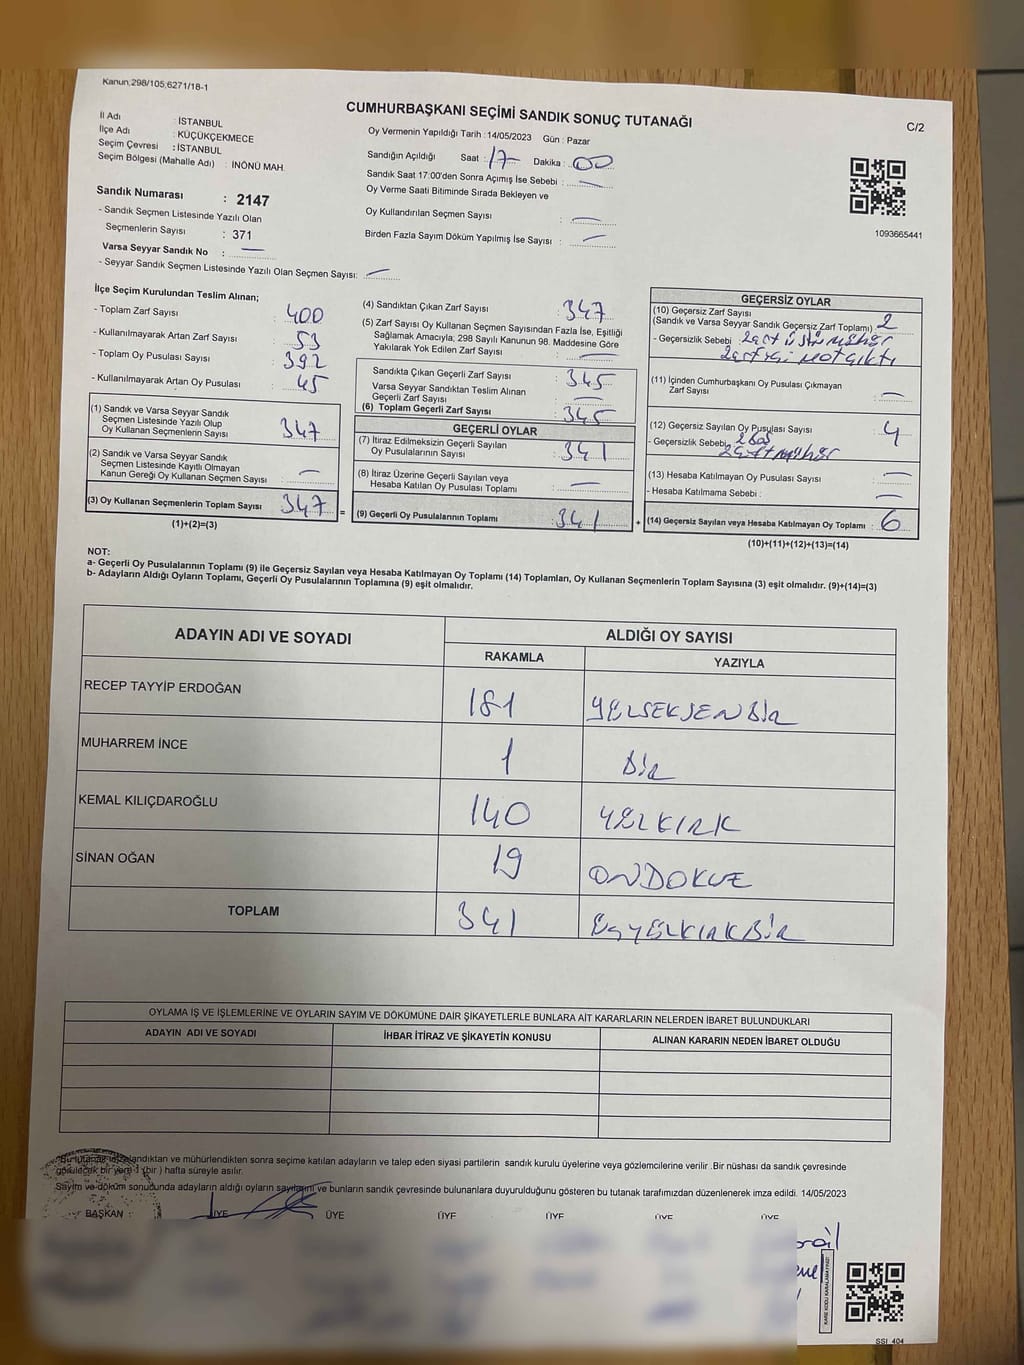 Kanun;298/105;6271/18-1
CUMHURBAŞKANI SEÇİMİ SANDIK SONUÇ TUTANAĞI
C/2
İl Adı : İSTANBUL
İlçe Adı : KÜÇÜKÇEKMECE
Seçim Çevresi : İSTANBUL
Seçim Bölgesi (Mahalle Adı) : İNÖNÜ MAH.
Sandık Numarası : 2147
- Sandık Seçmen Listesinde Yazılı Olan
Seçmenlerin Sayısı : 371
Varsa Seyyar Sandık No : —
- Seyyar Sandık Seçmen Listesinde Yazılı Olan Seçmen Sayısı: —
Oy Vermenin Yapıldığı Tarih :14/05/2023 Gün : Pazar
Sandığın Açıldığı Saat : 17 Dakika : 00
Sandık Saat 17:00'den Sonra Açımış İse Sebebi : —
Oy Verme Saati Bitiminde Sırada Bekleyen ve
Oy Kullandırılan Seçmen Sayısı : —
Birden Fazla Sayım Döküm Yapılmış İse Sayısı : —
1093665441
İlçe Seçim Kurulundan Teslim Alınan;
- Toplam Zarf Sayısı : 400
- Kullanılmayarak Artan Zarf Sayısı : 53
- Toplam Oy Pusulası Sayısı : 392
- Kullanılmayarak Artan Oy Pusulası : 45
(1) Sandık ve Varsa Seyyar Sandık
Seçmen Listesinde Yazılı Olup
Oy Kullanan Seçmenlerin Sayısı : 347
(2) Sandık ve Varsa Seyyar Sandık
Seçmen Listesinde Kayıtlı Olmayan
Kanun Gereği Oy Kullanan Seçmen Sayısı : —
(3) Oy Kullanan Seçmenlerin Toplam Sayısı : 347
(1)+(2)=(3)
(4) Sandıktan Çıkan Zarf Sayısı : 347
(5) Zarf Sayısı Oy Kullanan Seçmen Sayısından Fazla İse, Eşitliği
Sağlamak Amacıyla, 298 Sayılı Kanunun 98. Maddesine Göre
Yakılarak Yok Edilen Zarf Sayısı : —
Sandıkta Çıkan Geçerli Zarf Sayısı : 345
Varsa Seyyar Sandıktan Teslim Alınan
Geçerli Zarf Sayısı : —
(6) Toplam Geçerli Zarf Sayısı : 345
GEÇERLİ OYLAR
(7) İtiraz Edilmeksizin Geçerli Sayılan
Oy Pusulalarının Sayısı : 341
(8) İtiraz Üzerine Geçerli Sayılan veya
Hesaba Katılan Oy Pusulası Toplamı : —
= (9) Geçerli Oy Pusulalarının Toplamı : 341
GEÇERSİZ OYLAR
(10) Geçersiz Zarf Sayısı
(Sandık ve Varsa Seyyar Sandık Geçersiz Zarf Toplamı) : 2
- Geçersizlik Sebebi :
(11) İçinden Cumhurbaşkanı Oy Pusulası Çıkmayan
Zarf Sayısı : —
(12) Geçersiz Sayılan Oy Pusulası Sayısı : 4
- Geçersizlik Sebebi: 2 boş
2 çift mühür
(13) Hesaba Katılmayan Oy Pusulası Sayısı : —
- Hesaba Katılmama Sebebi : —
+ (14) Geçersiz Sayılan veya Hesaba Katılmayan Oy Toplamı : 6
(10)+(11)+(12)+(13)=(14)
NOT:
a- Geçerli Oy Pusulalarının Toplamı (9) ile Geçersiz Sayılan veya Hesaba Katılmayan Oy Toplamı (14) Toplamları, Oy Kullanan Seçmenlerin Toplam Sayısına (3) eşit olmalıdır. (9)+(14)=(3)
b- Adayların Aldığı Oyların Toplamı, Geçerli Oy Pusulalarının Toplamına (9) eşit olmalıdır.
ADAYIN ADI VE SOYADI ALDIĞI OY SAYISI
RAKAMLA YAZIYLA
RECEP TAYYİP ERDOĞAN 181 YÜZSEKSENBİR
MUHARREM İNCE 1 BİR
KEMAL KILIÇDAROĞLU 140 YÜZKIRK
SİNAN OĞAN 19 ONDOKUZ
TOPLAM 341 ÜÇYÜZKIRKBİR
OYLAMA İŞ VE İŞLEMLERİNE VE OYLARIN SAYIM VE DÖKÜMÜNE DAİR ŞİKAYETLERLE BUNLARA AİT KARARLARIN NELERDEN İBARET BULUNDUKLARI
ADAYIN ADI VE SOYADI İHBAR İTİRAZ VE ŞİKAYETİN KONUSU ALINAN KARARIN NEDEN İBARET OLDUĞU
Bu tutanak imzalandıktan ve mühürlendikten sonra seçime katılan adayların ve talep eden siyasi partilerin sandık kurulu üyelerine veya gözlemcilerine verilir .Bir nüshası da sandık çevresinde
görülecek bir yere 1 (bir ) hafta süreyle asılır.
Sayım ve döküm sonucunda adayların aldığı oyların sayılarını ve bunların sandık çevresinde bulunanlara duyurulduğunu gösteren bu tutanak tarafımızdan düzenlenerek imza edildi. 14/05/2023
BAŞKAN ÜYE ÜYE ÜYE ÜYE ÜYE ÜYE
KARE KODU KARALAMAYINIZ!
SSI_404